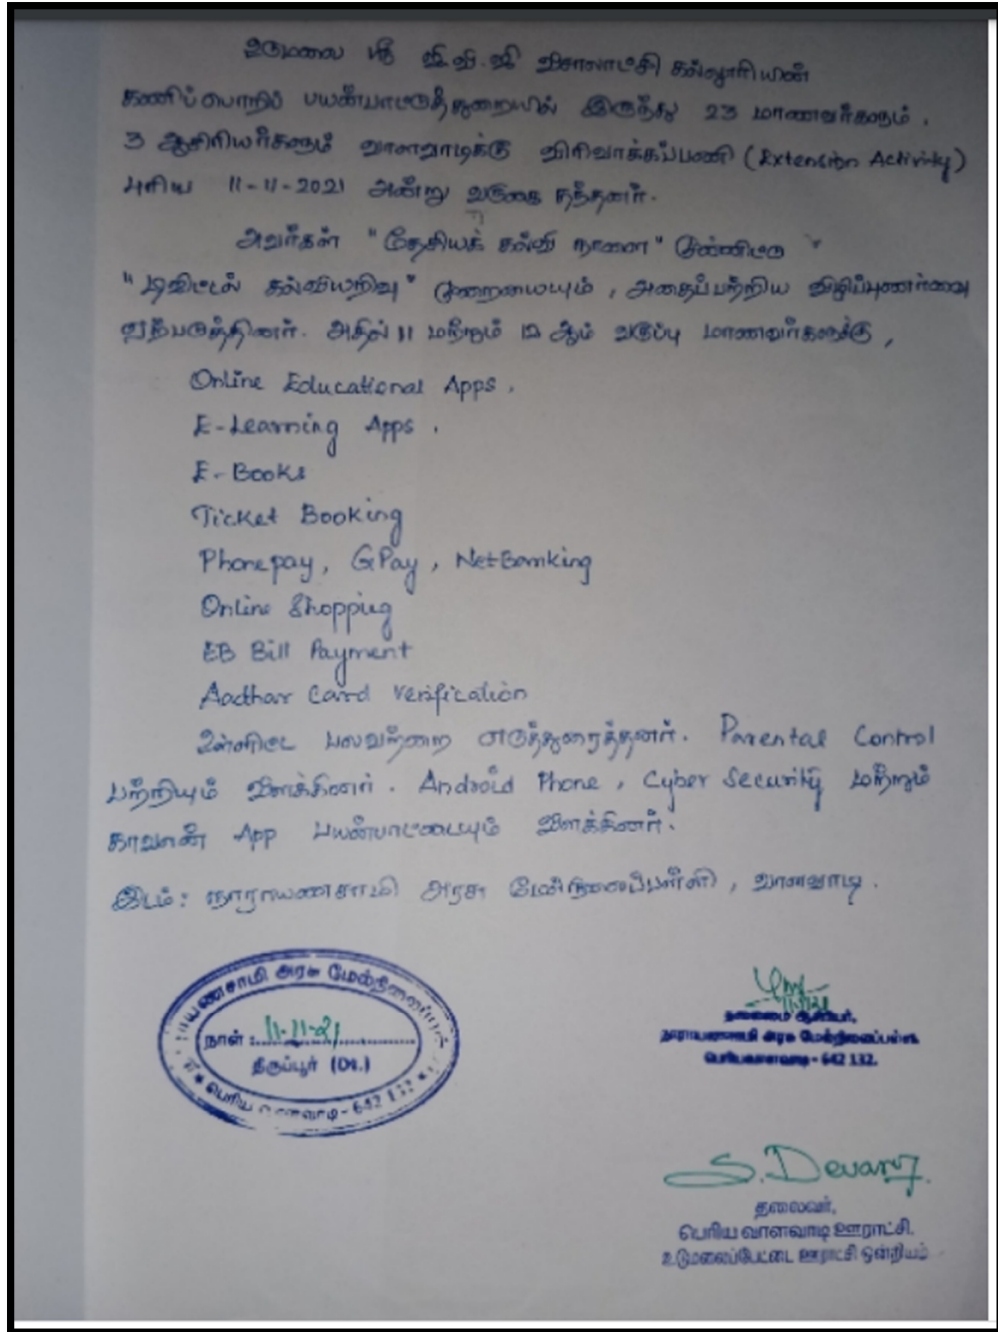 உடுமலை ஸ்ரீ ஜி.வி.ஜி விசாலாட்சி கல்லூரியின்
கணிப்பொறிப் பயன்பாட்டுத்துறையில் இருந்து 23 மாணவர்களும்,
3 ஆசிரியர்களும் வாளவாடிக்கு விரிவாக்கப்பணி (Extension Activity)
புரிய 11-11-2021 அன்று வருகை தந்தனர்.
அவர்கள் "தேசியக் கல்வி நாளை" முன்னிட்டு
"டிஜிட்டல் கல்வியறிவு" முறையையும், அதைப்பற்றிய விழிப்புணர்வை
ஏற்படுத்தினர். அதில் 11 மற்றும் 12 ஆம் வகுப்பு மாணவர்களுக்கு,
Online Educational Apps,
E-Learning Apps,
E-Books
Ticket Booking
Phonepay, GPay, NetBanking
Online Shopping
EB Bill Payment
Aadhar Card Verification
உள்ளிட்ட பலவற்றை எடுத்துரைத்தனர். Parental Control
பற்றியும் விளக்கினர். Android Phone, Cyber Security மற்றும்
காவலன் App பயன்பாட்டையும் விளக்கினர்.
இடம்: நாராயணசாமி அரசு மேல்நிலைப்பள்ளி, வாளவாடி.
அரசு மேல்நிலைப்பள்ளி
நாள்: 11-11-21
திருப்பூர் (Dt.)
பெரிய வாளவாடி - 642 132
11/11/21
தலைமை ஆசிரியர்,
நாராயணசாமி அரசு மேல்நிலைப்பள்ளி
பெரியவாளவாடி - 642 132.
S. Devaraj
தலைவர்,
பெரிய வாளவாடி ஊராட்சி.
உடுமலைப்பேட்டை ஊராட்சி ஒன்றியம்